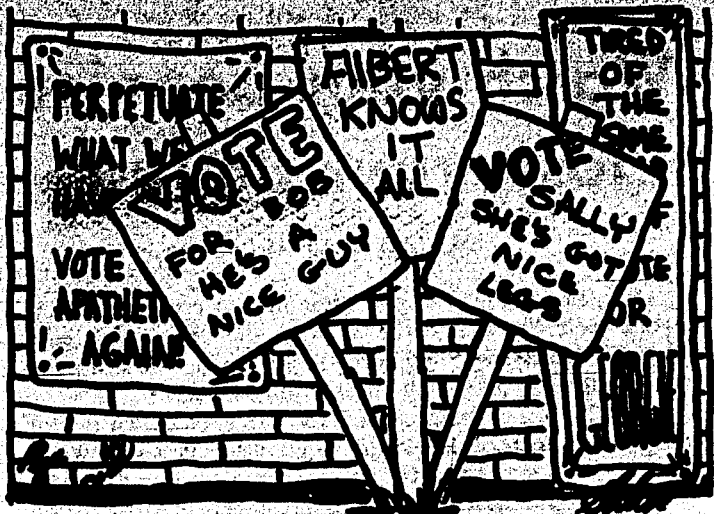 PERPETUATE
WHAT WE
VOTE
APATHETI
AGAIN!
VOTE
FOR BOB
HE'S A
NICE GUY
ALBERT
KNOWS
IT
ALL
VOTE
SALLY
SHE'S GOT
NICE
LEGS
TIRED
OF
THE
SAME
OR